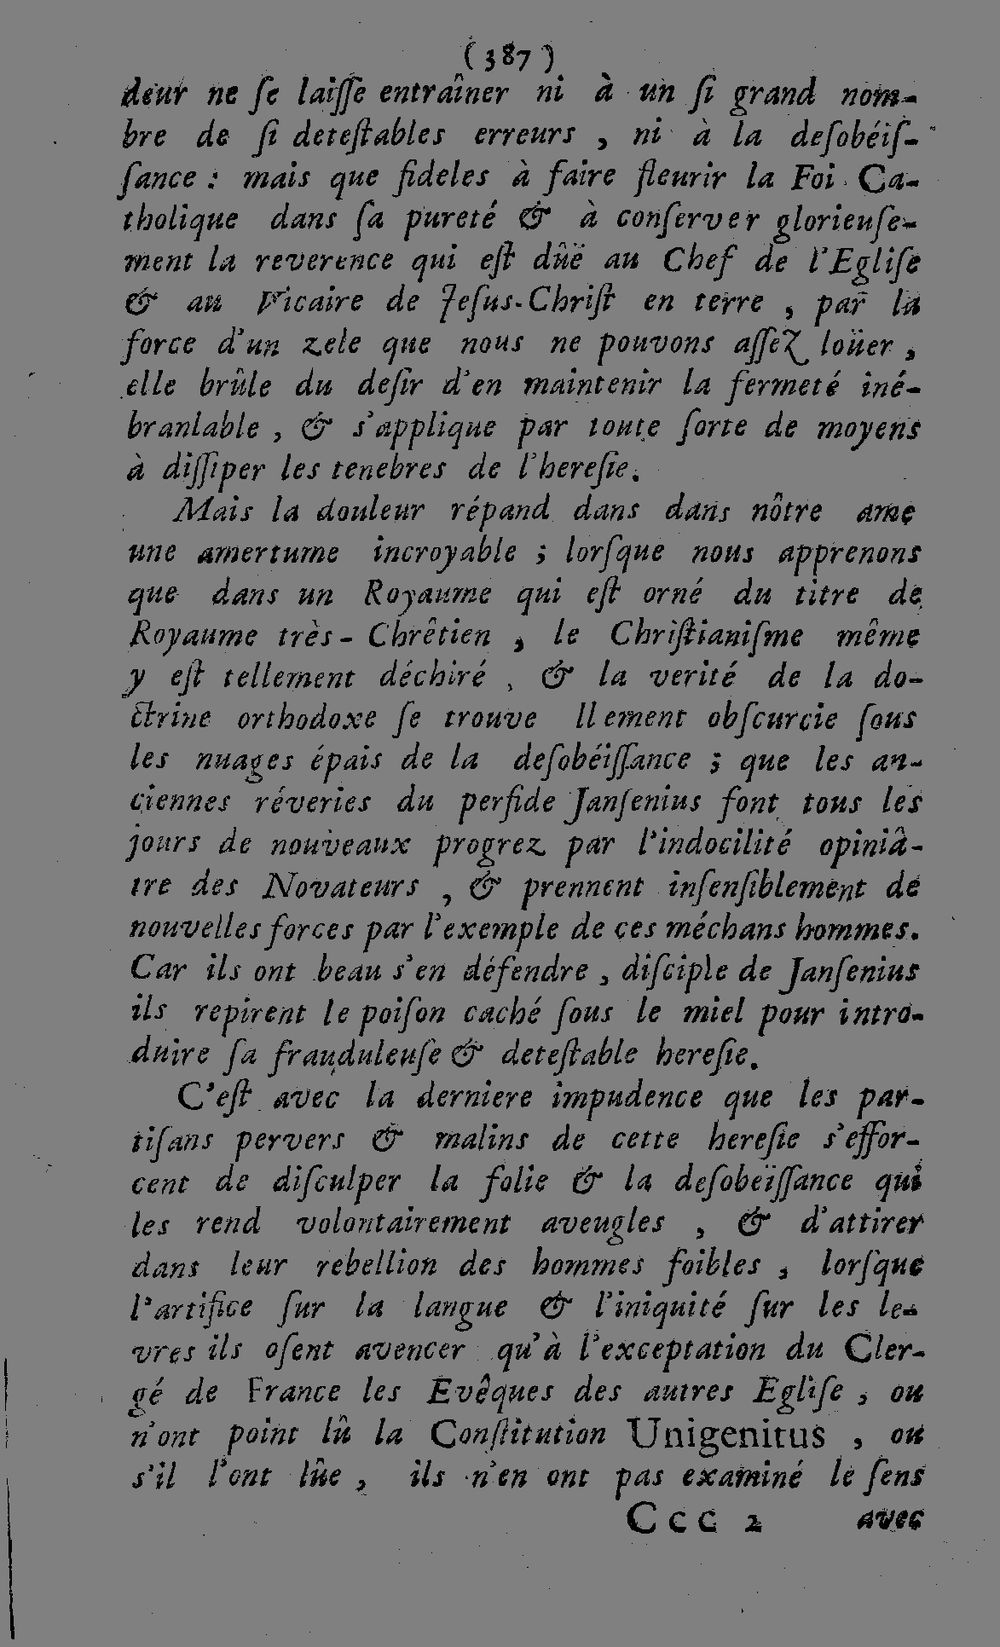 (387)
deur ne ſe laiſſe entraîner ni à un ſi grand nom-
bre de ſi deteſtables erreurs , ni à la deſobéiſ-
ſance : mais que fideles à faire fleurir la Foi Ca-
tholique dans ſa pureté & à conſerver glorieuſe-
ment la reverence qui eſt dûë au Chef de l'Egliſe
& au Vicaire de Jeſus-Chriſt en terre , par la
force d'un zele que nous ne pouvons aſſez loüer ,
elle brûle du deſir d'en maintenir la fermeté iné-
branlable , & s'applique par toute ſorte de moyens
à diſſiper les tenebres de l'hereſie.
Mais la douleur répand dans dans nôtre ame
une amertume incroyable ; lorſque nous apprenons
que dans un Royaume qui eſt orné du titre de
Royaume très-Chrêtien , le Chriſtianiſme même
y eſt tellement déchiré , & la verité de la do-
ctrine orthodoxe ſe trouve llement obſcurcie ſous
les nuages épais de la deſobéiſſance ; que les an-
ciennes réveries du perfide Janſenius font tous les
jours de nouveaux progrez par l'indocilité opiniâ-
tre des Novateurs , & prennent inſenſiblement de
nouvelles forces par l'exemple de ces méchans hommes.
Car ils ont beau s'en défendre , diſciple de Janſenius
ils repirent le poiſon caché ſous le miel pour intro-
duire ſa frauduleuſe & deteſtable hereſie.
C'eſt avec la derniere impudence que les par-
tiſans pervers & malins de cette hereſie s'effor-
cent de diſculper la folie & la deſobeïſſance qui
les rend volontairement aveugles , & d'attirer
dans leur rebellion des hommes foibles , lorſque
l'artifice ſur la langue & l'iniquité ſur les le-
vres ils oſent avencer qu'à l'exceptation du Cler-
gé de France les Evêques des autres Egliſe , ou
n'ont point lû la Conſtitution Unigenitus , ou
s'il l'ont lûe , ils n'en ont pas examiné le ſens
Ccc 2 avec